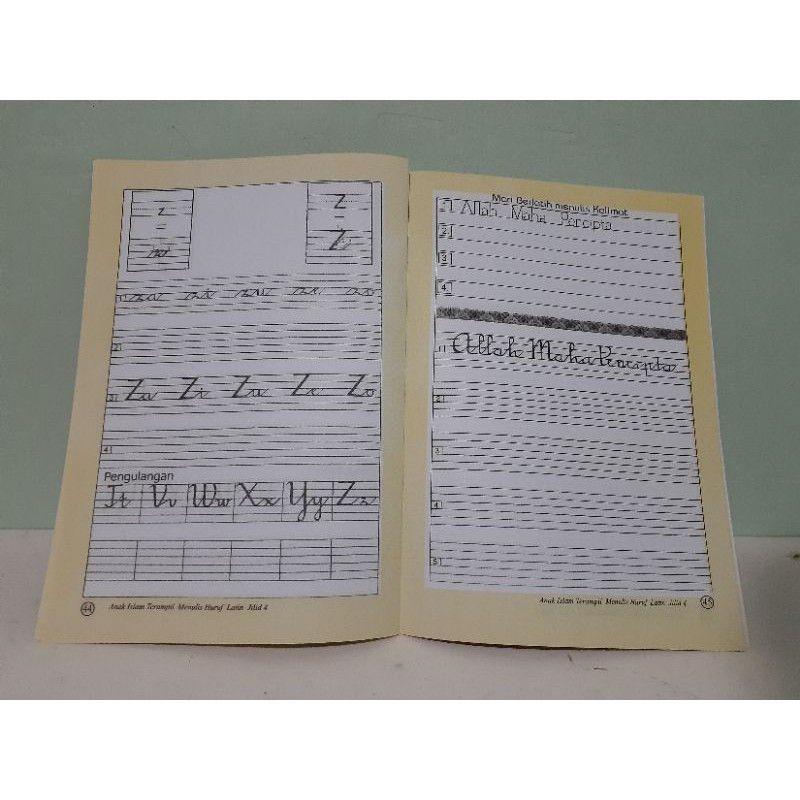 z
z
Z
Z
1 za zi zu ze zo
2
3 Za Zi Zu Ze Zo
4
Pengulangan
Tt Vv Ww Xx Yy Zz
44 Anak Islam Terampil Menulis Huruf Latin Jilid 4
Mari Berlatih menulis Kalimat
1 Allah Maha Pencipta
2
3
4
1 Allah Maha Pencipta
2
3
4
5
Anak Islam Terampil Menulis Huruf Latin Jilid 4 45